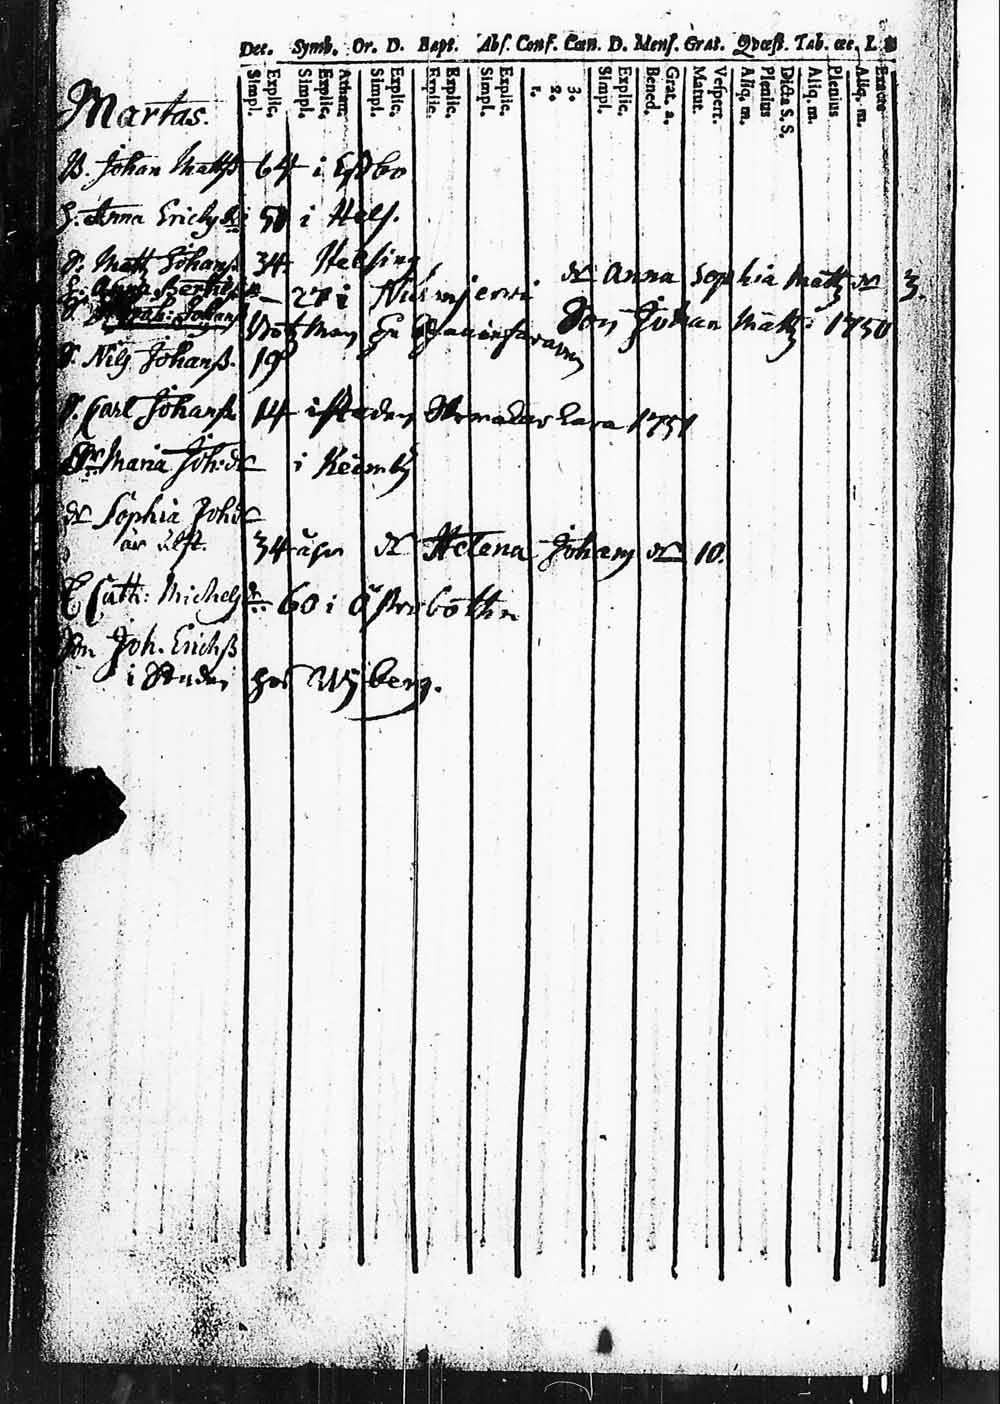 Dec. Symb. Or. D. Bapt. Abs. Conf. Cœn. D. Mens. Grat. Qvæst. Tab. œc. L.
Simpl. Explic. Simpl. Explic. Athan. Simpl. Explic. Explic. Simpl. Explic. 1. 2. 3. Simpl. Explic. Bened. Grat. a. Matut. Vespert. Aliq. m. Plenius Dicta S. S. Aliq. m. Plenius Aliq. m. Exacte
Martas.
B. Johan Mattß 64 i Esbo
H. Anna Erichsdr 58 i Hels.
S. Matts Johanß. 34. Helsing
dr Anna Sophia Matts dr 3.
H. Anna 27 i Nurmjerwi
S. Johanß Son Johan Matts: 1750
S. Nils Johanß. 19
S. Carl Johanß 14 i staden 1751
Dr Maria Joh: dr i
dr Sophia Joh dr
34 åhr dr Helena Johans dr 10.
E Cath: Michels dr 60 i Östrobottn
Son Joh. Erichß
i Staden hos Wijberg.